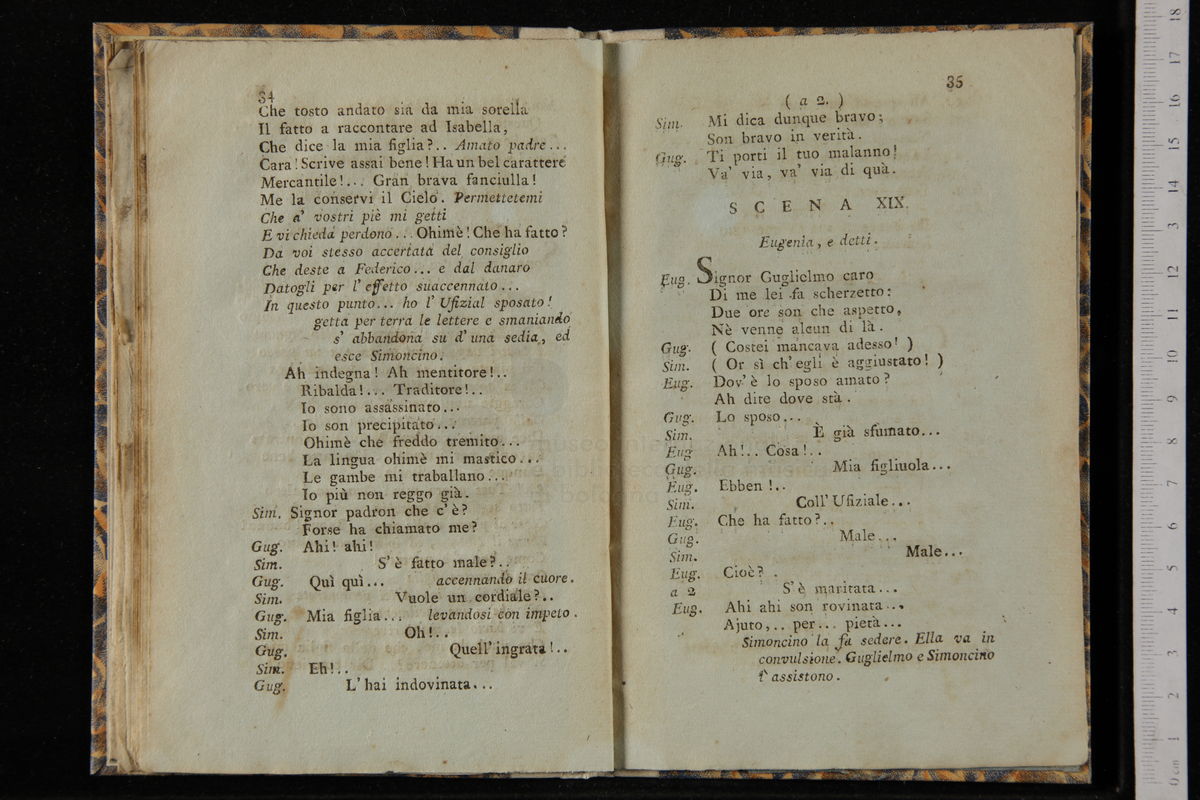 34
Che tosto andato sia da mia sorella
Il fatto a raccontare ad Isabella,
Che dice la mia figlia?.. Amato padre...
Cara! Scrive assai bene! Ha un bel carattere
Mercantile!... Gran brava fanciulla!
Me la conservi il Cielo. Permettetemi
Che a' vostri piè mi getti
E vi chieda perdono... Ohimè! Che ha fatto?
Da voi stesso accertata del consiglio
Che deste a Federico... e dal danaro
Datogli per l' effetto suaccennato...
In questo punto... ho l' Ufizial sposato!
getta per terra le lettere e smaniando
s' abbandona su d' una sedia, ed
esce Simoncino.
Ah indegna! Ah mentitore!..
Ribalda!... Traditore!..
Io sono assassinato...
Io son precipitato...
Ohimè che freddo tremito...
La lingua ohimè mi mastico...
Le gambe mi traballano...
Io più non reggo già.
Sim. Signor padron che c' è?
Forse ha chiamato me?
Gug. Ahi! ahi!
Sim. S' è fatto male?..
Gug. Quì quì... accennando il cuore.
Sim. Vuole un cordiale?..
Gug. Mia figlia... levandosi con impeto.
Sim. Oh!..
Gug. Quell' ingrata!..
Sim. Eh!..
Gug. L' hai indovinata...
35
( a 2. )
Sim. Mi dica dunque bravo;
Son bravo in verità.
Gug. Ti porti il tuo malanno!
Va' via, va' via di quà.
SCENA XIX.
Eugenia, e detti.
Eug. Signor Guglielmo caro
Di me lei fa scherzetto:
Due ore son che aspetto,
Nè venne alcun di là.
Gug. ( Costei mancava adesso! )
Sim. ( Or sì ch' egli è aggiustato! )
Eug. Dov' è lo sposo amato?
Ah dite dove stà.
Gug. Lo sposo...
Sim. È già sfumato...
Eug Ah!.. Cosa!..
Gug. Mia figliuola...
Eug. Ebben!..
Sim. Coll' Ufiziale...
Eug. Che ha fatto?..
Gug. Male...
Sim. Male...
Eug. Cioè?.
a 2 S' è maritata...
Eug. Ahi ahi son rovinata...
Ajuto,.. per... pietà...
Simoncino la fa sedere. Ella va in
convulsione. Guglielmo e Simoncino
l' assistono.